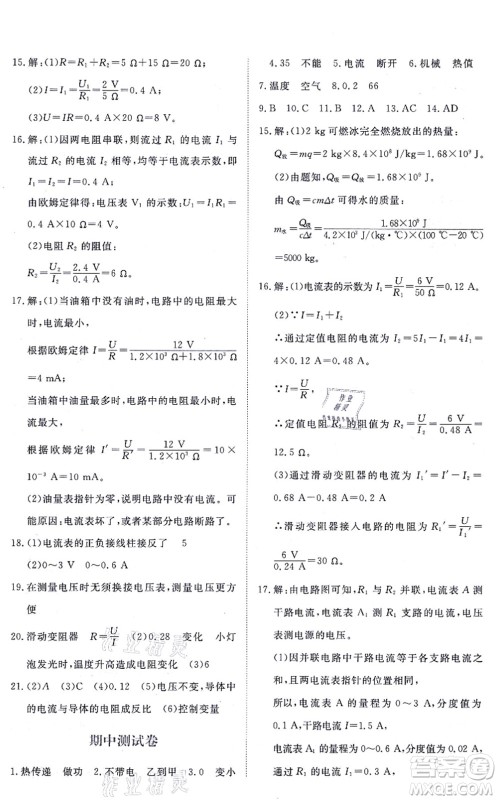 15.解:(1)R=R₁+R₂=5 Ω+10 Ω=15 Ω。
(2)I=I₁=U₁/R₁=2 V/5 Ω=0.4 A;
(3)U=IR=0.4 A×15 Ω=6 V。
16.解:(1)因两电阻串联,则流过 R₁ 的电流与
流过 R₂ 的电流相等,等于电流表示数,即
I=I₁=I₂=0.4 A;
由欧姆定律得:电压表 V₁ 的示数:U₁=I₁R₁=
0.4 A×10 Ω=4 V。
(2)电阻 R₂ 的阻值:
R₂=U₂/I₂=2.4 V/0.4 A=6 Ω。
17.解:(1)当油箱中没油时,电路中的电阻最
大,电流最小,
根据欧姆定律 I=U/R=12 V/(1.2×10³ Ω+1.8×10³ Ω)
=4 mA;
当油箱中油量最多时,电路中的电阻最小,
电流最大,
根据欧姆定律 I′=U/R′=12 V/(1.2×10³ Ω)=10×
10⁻³ A=10 mA。
(2)油量表指针为零,说明电路中无电流,可
能原因:电源断电了、或者某部分电路断路了。
18.(1)电流表的正负接线柱接反了 5
(2)0~3 V (3)0~0.6 A
19.在测量电压时无须换接电压表,测量电压更方便
些
20.滑动变阻器 R=U/I (2)0.28 变化 小灯
泡发光时,温度升高造成电阻变化 (3)6
21.(2)A (3)0.4 (4)D (5)电压不变,导体中的
电流与导体的电阻成反比 (6)控制变量法
期中测试卷
1.热传递 做功 2.不带电 乙到甲 3.0 变小
4.35 不能 5.电流 断开 6.机械 热值
7.温度 空气 8.0.2 66
9.B 10.C 11.B 12.C 13.AC 14.AD
15.解:(1)2 kg 可燃冰完全燃烧放出的热量:
(2)由题知,
由 Q吸=cmΔt 可得水的质量:
m水=Q吸/cΔt=1.68×10⁹ J/4.2×10³ J/(kg·℃)×(100 ℃-20 ℃)
=5000 kg。
16.解:(1)电流表的示数为 I=U/R₁=6 V/50 Ω=0.12 A。
(2)∵I=I₁+I₂
∴通过定值电阻的电流 I₂=5I₁-I₁=4I₁=
4×0.12 A=0.48 A
∵I=U/R
∴定值电阻的电阻值为 R₂=U/I₂=6 V/0.48 A=
12.5 Ω。
(3)通过滑动变阻器的电流为 I₁′=I′-I₂=
0.68 A-0.48 A=0.2 A
∴滑动变阻器接入电路的电阻为 R₁′=U/I₁′=
6 V/0.2 A=30 Ω。
17.解:由电路图可知,R₁ 与 R₂ 并联,电流表 A 测
干路电流,电流表 A₁ 测支路电流,电压表测
电源的电压。
(1)因并联电路中干路电流等于各支路电流
之和,且两电流表指针偏转相同,
所以,电流表 A 的量程为 0~0.6 A,分度值为
0.1 A,示数为 I=0.5 A;
电流表 A₁ 的量程为 0~